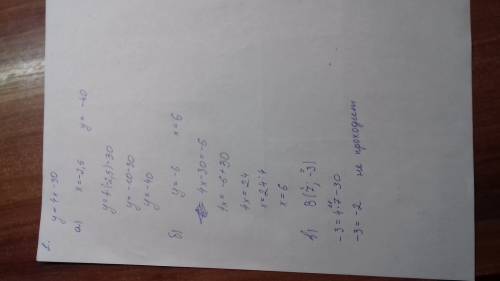 2. y = 4x - 30
а) x = -2,5 y = -40
y = 4·(-2,5) - 30
y = -10 - 30
y = -40
б) y = -6 x = 6
4x - 30 = -6
4x = -6 + 30
4x = 24
x = 24:4
x = 6
в) B (7; -3)
-3 = 4·7 - 30
-3 = -2 не проходит